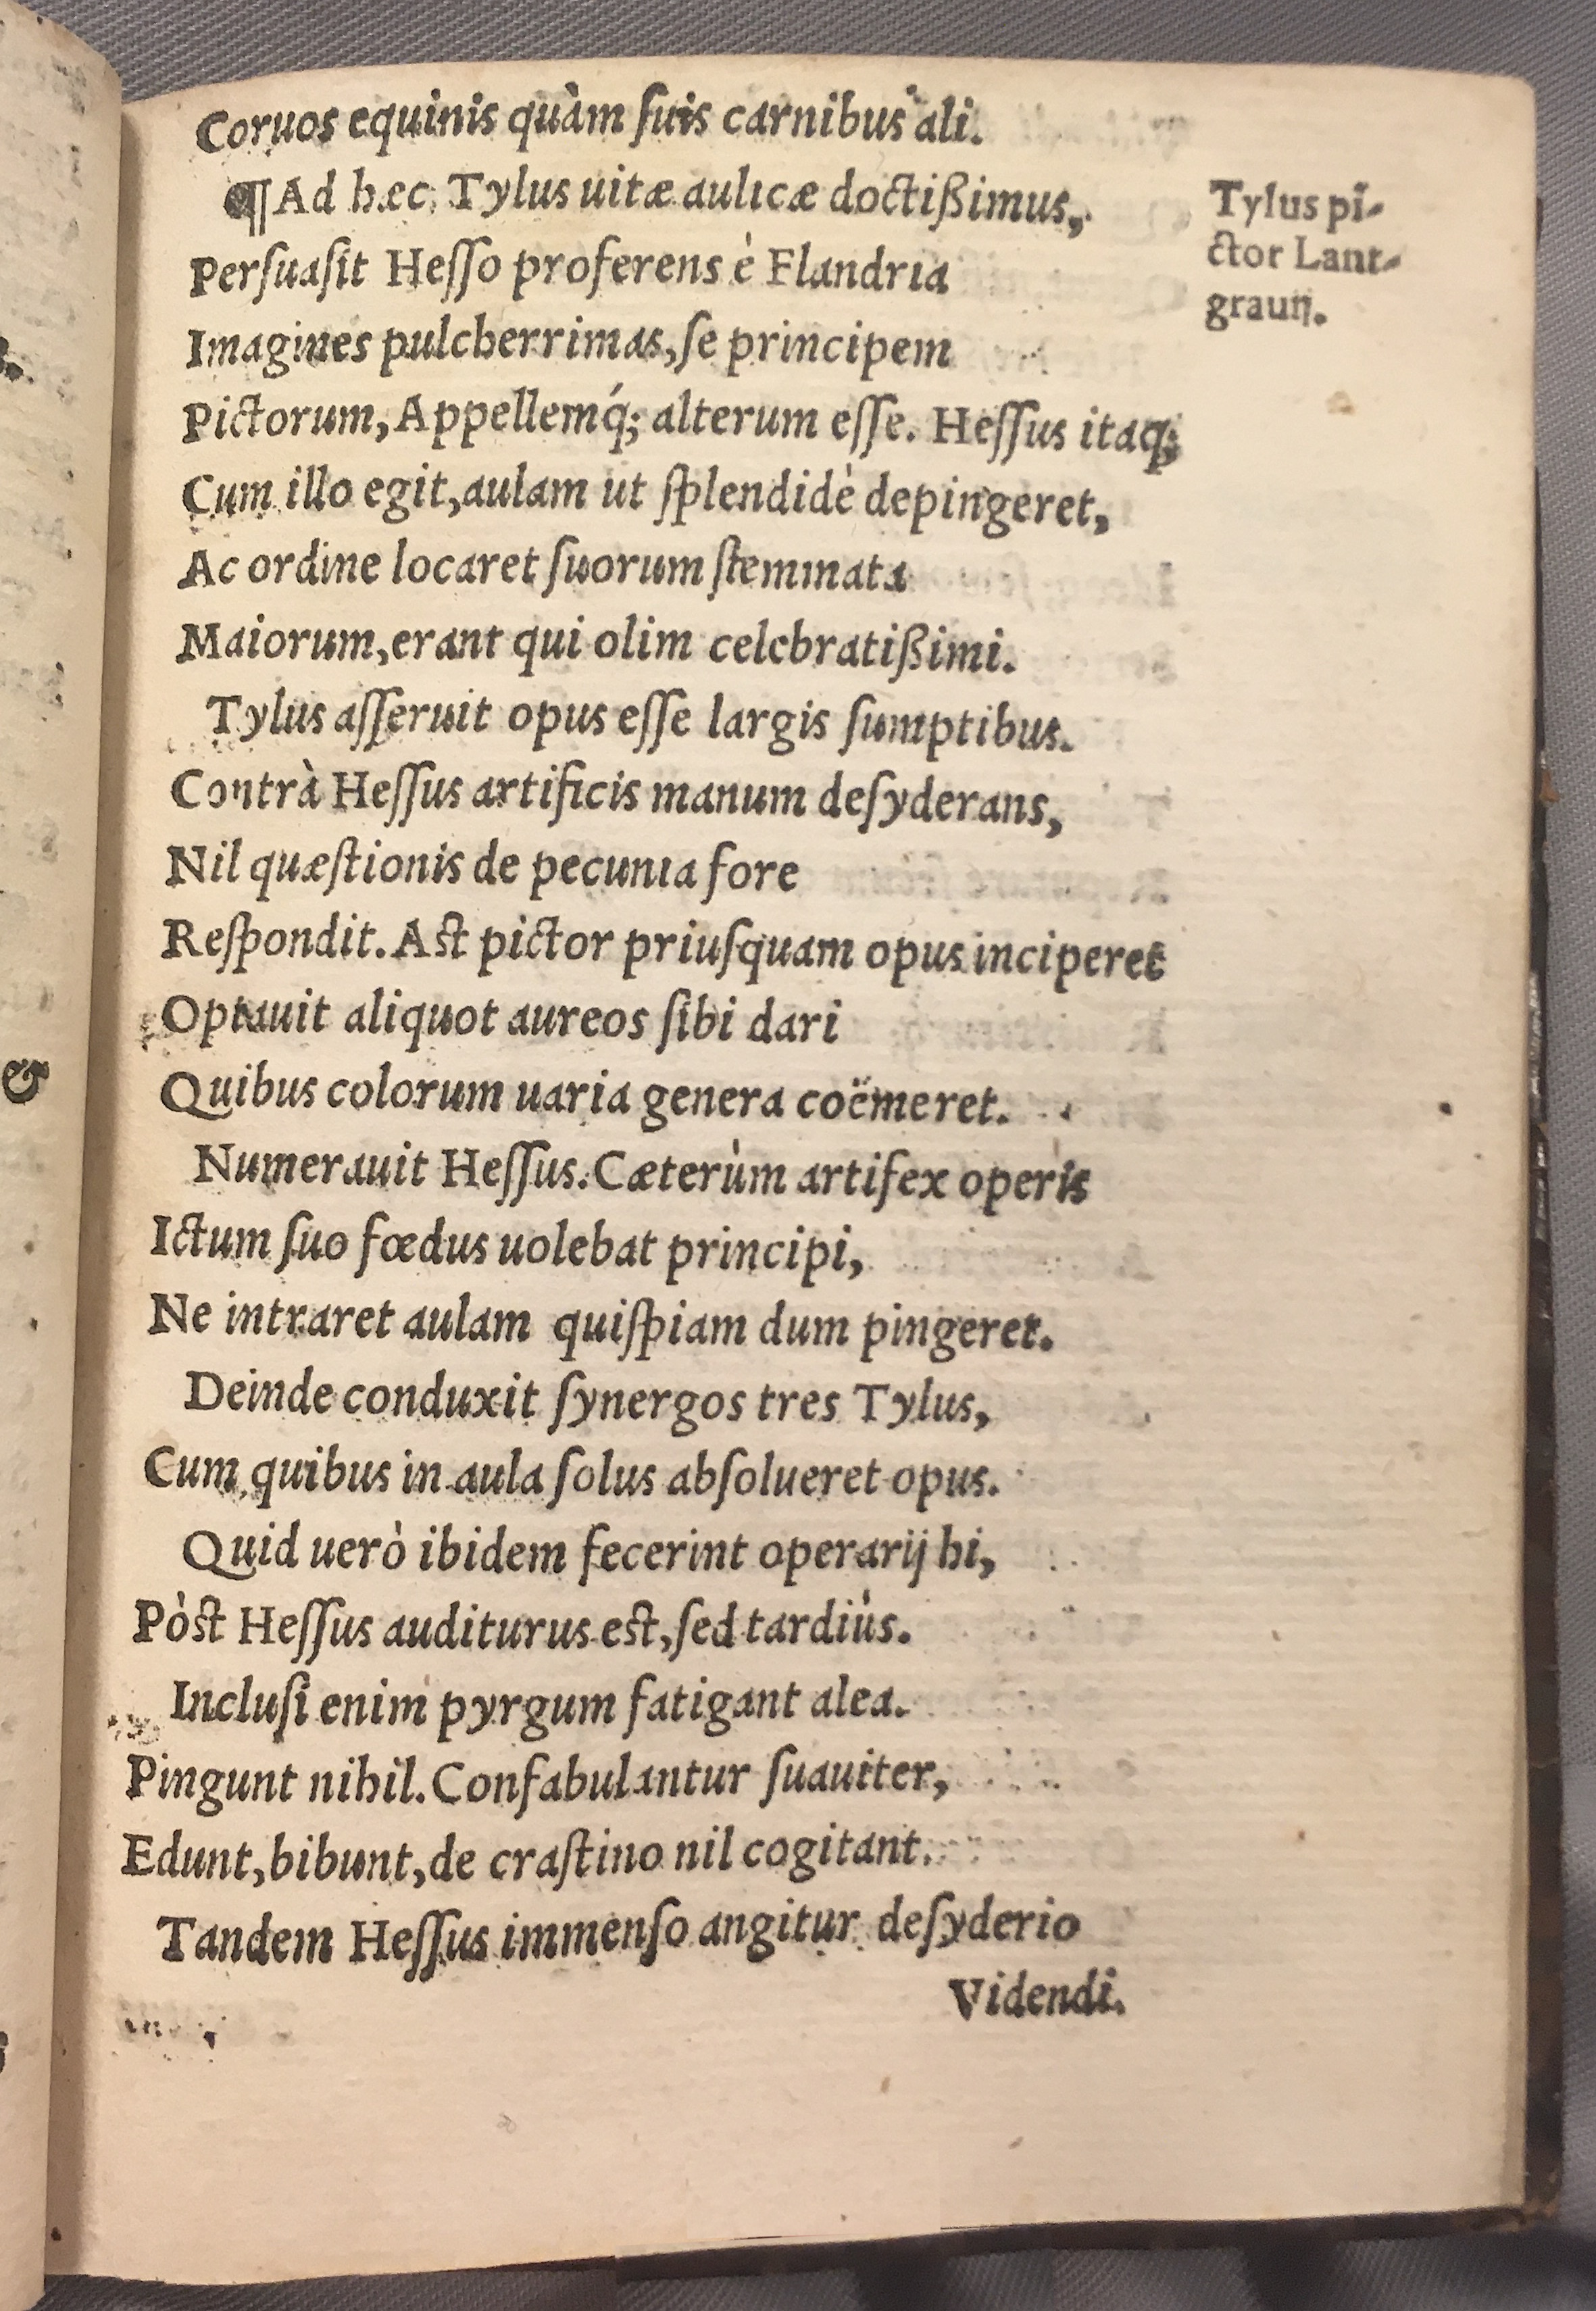 Coruos equinis quàm ſuis carnibus ali.
¶ Ad hæc Tylus uitæ aulicæ doctißimus,
Tylus pi-
ctor Lant-
grauij.
Perſuaſit Heſſo proferens è Flandria
Imagines pulcherrimas, ſe principem
Pictorum, Appellemq́; alterum eſſe. Heſſus itaq;
Cum illo egit, aulam ut ſplendidè depingeret,
Ac ordine locaret ſuorum ſtemmata
Maiorum, erant qui olim celebratißimi.
Tylus aſſeruit opus eſſe largis ſumptibus.
Contrà Heſſus artificis manum deſyderans,
Nil quæſtionis de pecunia fore
Reſpondit. Aſt pictor priuſquam opus inciperet
Optauit aliquot aureos ſibi dari
Quibus colorum uaria genera coëmeret.
Numerauit Heſſus. Cæterùm artifex operis
Ictum ſuo fœdus uolebat principi,
Ne intraret aulam quiſpiam dum pingeret.
Deinde conduxit ſynergos tres Tylus,
Cum quibus in aula ſolus abſolueret opus.
Quid uerò ibidem fecerint operarij hi,
Pòſt Heſſus auditurus eſt, ſed tardiùs.
Incluſi enim pyrgum fatigant alea.
Pingunt nihil. Confabulantur ſuauiter,
Edunt, bibunt, de craſtino nil cogitant.
Tandem Heſſus immenſo angitur deſyderio
Videndi.